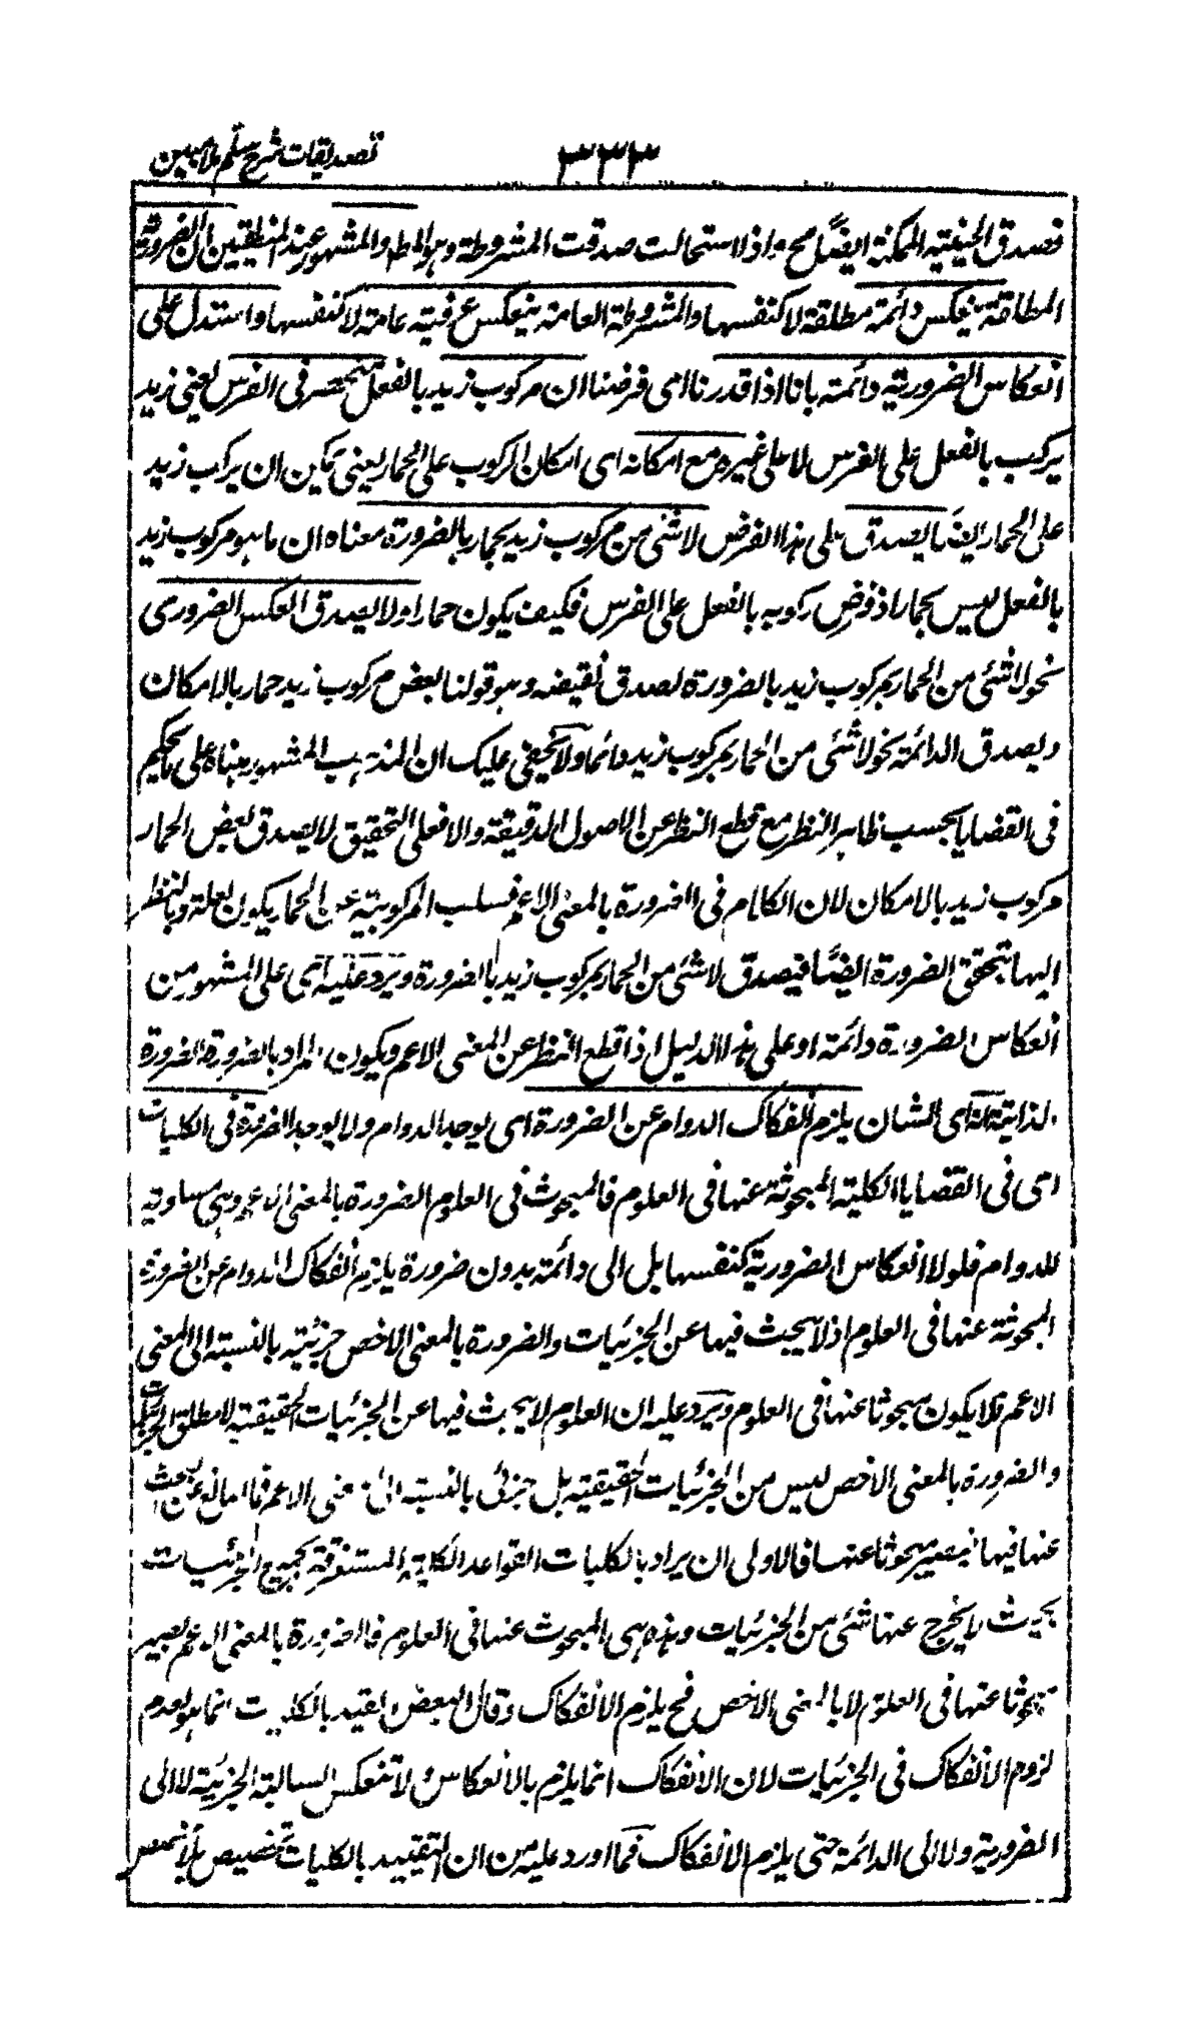 تصديقات شرح سلم ملا مبين
٣٣٣
فصدق الحينية الممكنة ايضا مح واذ لا استحالت صدقت المشروطة وهو المط والمشهور عند المنطقيين ان الضرورية
المطلقة ينعكس دائمة مطلقة لا كنفسها والمشروطة العامة ينعكس عرفية عامة لا كنفسها واستدل على
انعكاس الضرورية دائمة بانا اذا قدرنا اى فرضنا ان مركوب زيد بالفعل منحصر فى الفرس يعنى زيد
يركب بالفعل على الفرس لا على غيره مع امكانه اى امكان الركوب على الحمار يعنى يمكن ان يركب زيد
على الحمار ايضا يصدق على هذا الفرض لا شئ من مركوب زيد بحمار بالضرورة معناه ان ما هو مركوب زيد
بالفعل ليس بحمار اذ فرض ركوبه بالفعل على الفرس فكيف يكون حمارا ولا يصدق العكس الضرورى
نحو لا شئ من الحمار بمركوب زيد بالضرورة لصدق نقيضه وهو قولنا بعض مركوب زيد حمار بالامكان
ويصدق الدائمة نحو لا شئ من الحمار بمركوب زيد دائما ولا يخفى عليك ان المذهب المشهور مبناه على ما يحكم
فى القضايا بحسب ظاهر النظر مع قطع النظر عن الاصول الدقيقة والا فعلى التحقيق لا يصدق بعض الحمار
مركوب زيد بالامكان لان الكلام فى الضرورة بالمعنى الاعم فسلب المركوبية عن الحمار يكون لعلة وبالنظر
اليها يتحقق الضرورة ايضا فيصدق لا شئ من الحمار بمركوب زيد بالضرورة ويرد عليه اى على المشهور من
انعكاس الضرورة دائمة او على هذا الدليل اذا قطع النظر عن المعنى الاعم ويكون المراد بالضرورة الضرورة
الذاتية انه اى الشان يلزم انفكاك الدوام عن الضرورة اى يوجد الدوام ولا يوجد الضرورة فى الكليات
اى فى القضايا الكلية المبحوثة عنها فى العلوم فالمبحوث فى العلوم الضرورة بالمعنى الاعم وهى مساوية
للدوام فلولا انعكاس الضرورية كنفسها بل الى دائمة بدون ضرورة يلزم انفكاك الدوام عن الضرورة
المبحوثة عنها فى العلوم اذ لا يبحث فيها عن الجزئيات والضرورة بالمعنى الاخص جزئية بالنسبة الى المعنى
الاعم فلا يكون مبحوثا عنها فى العلوم ويرد عليه ان العلوم لا يبحث فيها عن الجزئيات الحقيقية لا مطلق الجزئيات
والضرورة بالمعنى الاخص ليس من الجزئيات الحقيقية بل جزئى بالنسبة الى المعنى الاعم فما المانع عن البحث
عنها فيها فيصير مبحوثا عنها فالاولى ان يراد بالكليات القواعد الكلية المستغرقة بجميع الجزئيات
بحيث لا يخرج عنها شئ من الجزئيات وهذه هى المبحوث عنها فى العلوم فالضرورة بالمعنى الاعم يصير
مبحوثا عنها فى العلوم لا بالمعنى الاخص فح يلزم الانفكاك وقال البعض القيد بالكليات انما هو لعدم
لزوم الانفكاك فى الجزئيات لان الانفكاك انما يلزم بالانعكاس ولا تنعكس السالبة الجزئية لا الى
الضرورية ولا الى الدائمة حتى يلزم الانفكاك فما اورد عليه من ان التقييد بالكليات تخصيص